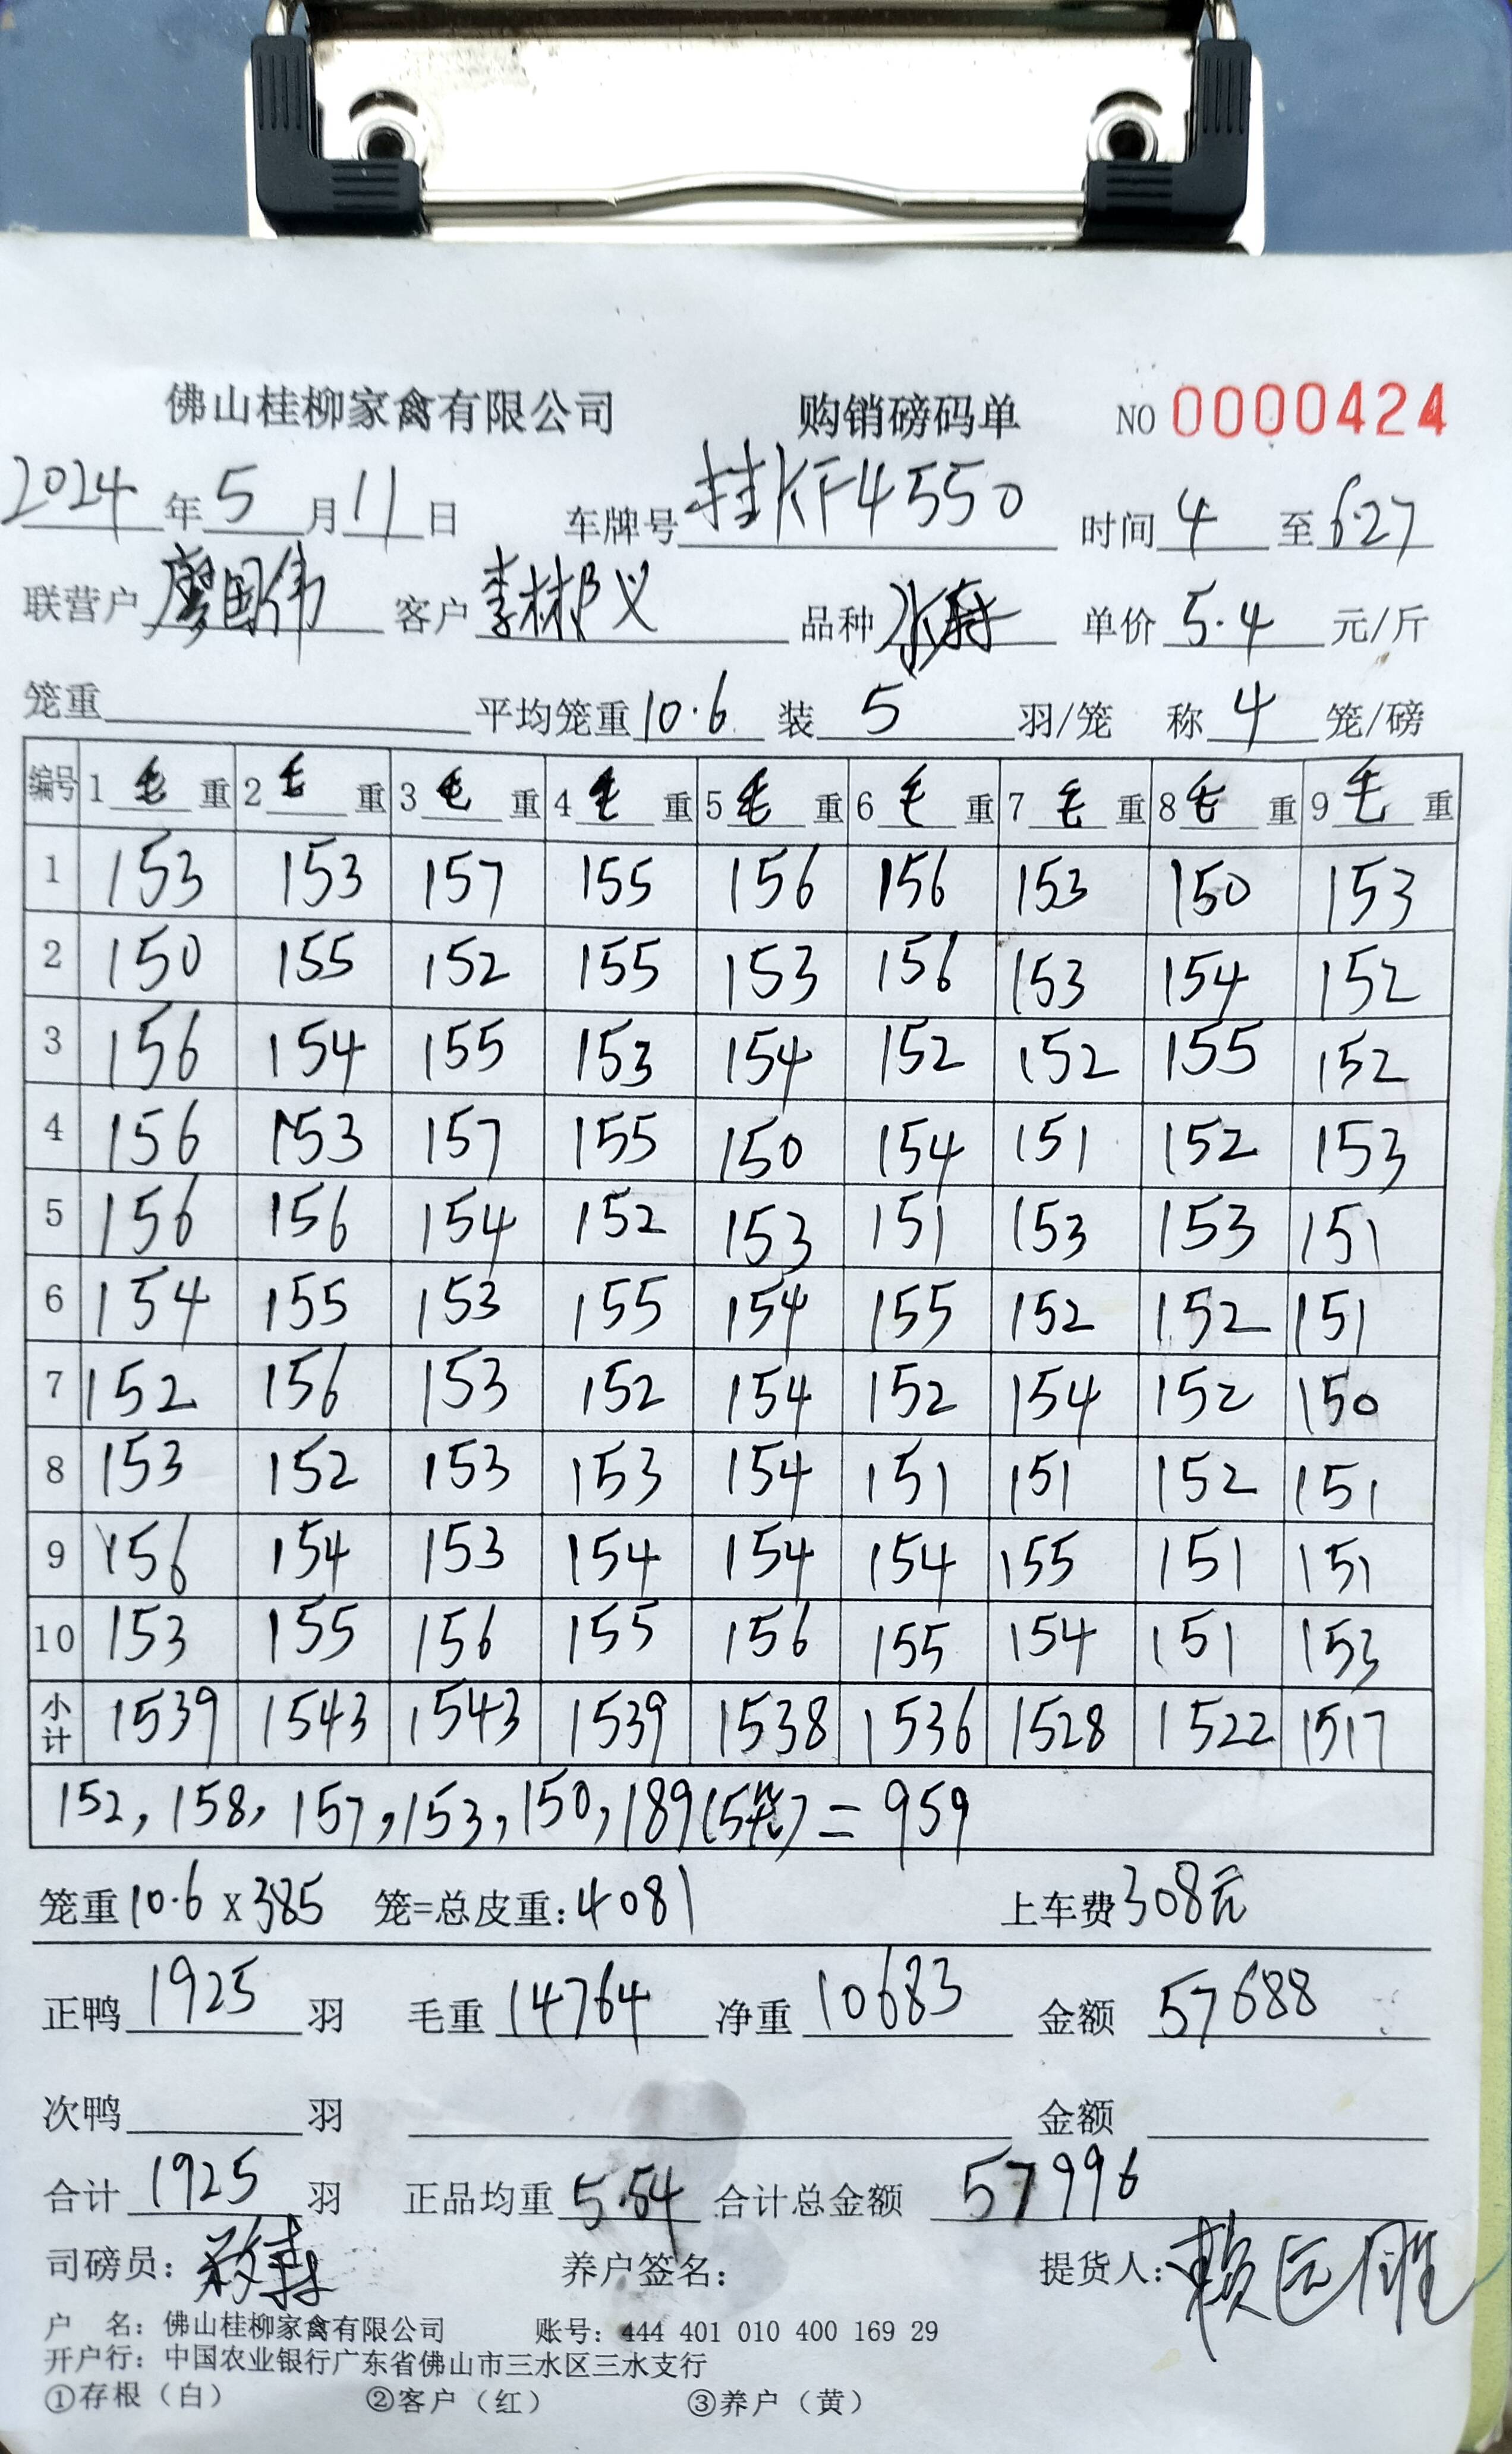 佛山桂柳家禽有限公司 购销磅码单 NO 0000424
2024年5月11日 车牌号 桂KF4550 时间4至6:27
联营户 廖国伟 客户 李彬义 品种 单价5.4元/斤
笼重 平均笼重10.6 装5羽/笼 称4笼/磅
编号 1毛重 2毛重 3毛重 4毛重 5毛重 6毛重 7毛重 8毛重 9毛重
1 153 153 157 155 156 156 153 150 153
2 150 155 152 155 153 156 153 154 152
3 156 154 155 153 154 152 152 155 152
4 156 153 157 155 150 154 151 152 153
5 156 156 154 152 153 151 153 153 151
6 154 155 153 155 154 155 152 152 151
7 152 156 153 152 154 152 154 152 150
8 153 152 153 153 154 151 151 152 151
9 156 154 153 154 154 154 155 151 151
10 153 155 156 155 156 155 154 151 153
小计 1539 1543 1543 1539 1538 1536 1528 1522 1517
152, 158, 157, 153, 150, 189(5笼) = 959
笼重10.6 x 385 笼=总皮重:4081 上车费308元
正鸭1925羽 毛重14764 净重10683 金额57688
次鸭 羽 金额
合计1925羽 正品均重5.54 合计总金额57996
司磅员: 养户签名: 提货人:
户 名: 佛山桂柳家禽有限公司 账号: 444 401 010 400 169 29
开户行: 中国农业银行广东省佛山市三水区三水支行
①存根（白） ②客户（红） ③养户（黄）